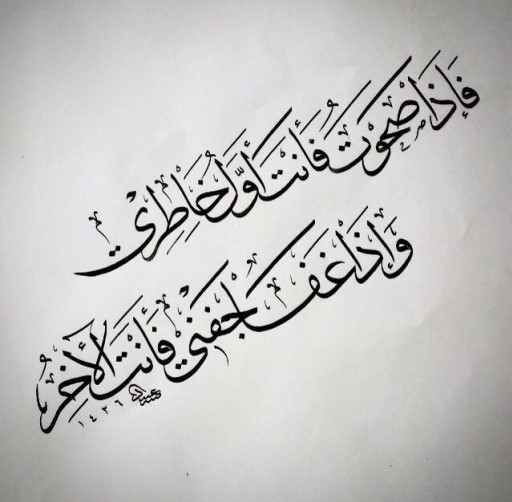 فَإِذَا صَحَوْتُ فَأَنْتَ أَوَّلُ خَاطِرِي
وَإِذَا غَفَا جَفْنِي فَأَنْتَ الْآخِرُ
١٤٣٦